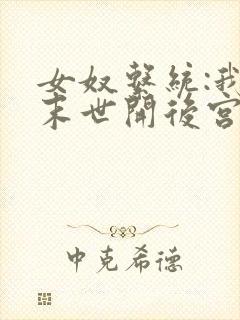 女奴繫統:我
末世開後宮
中克希德